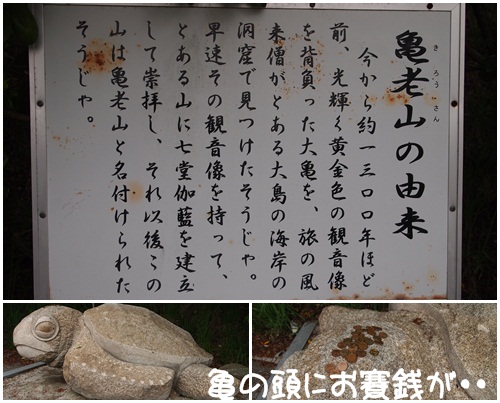 亀老山の由来
きろうさん
今から約一三〇〇年ほど
前、光輝く黄金色の観音像
を背負った大亀を、旅の風
来僧がとある大島の海岸の
洞窟で見つけたそうじゃ。
早速その観音像を持って、
とある山に七堂伽藍を建立
して崇拝し、それ以後この
山は亀老山と名付けられた
そうじゃ。
亀の頭にお賽銭が・・